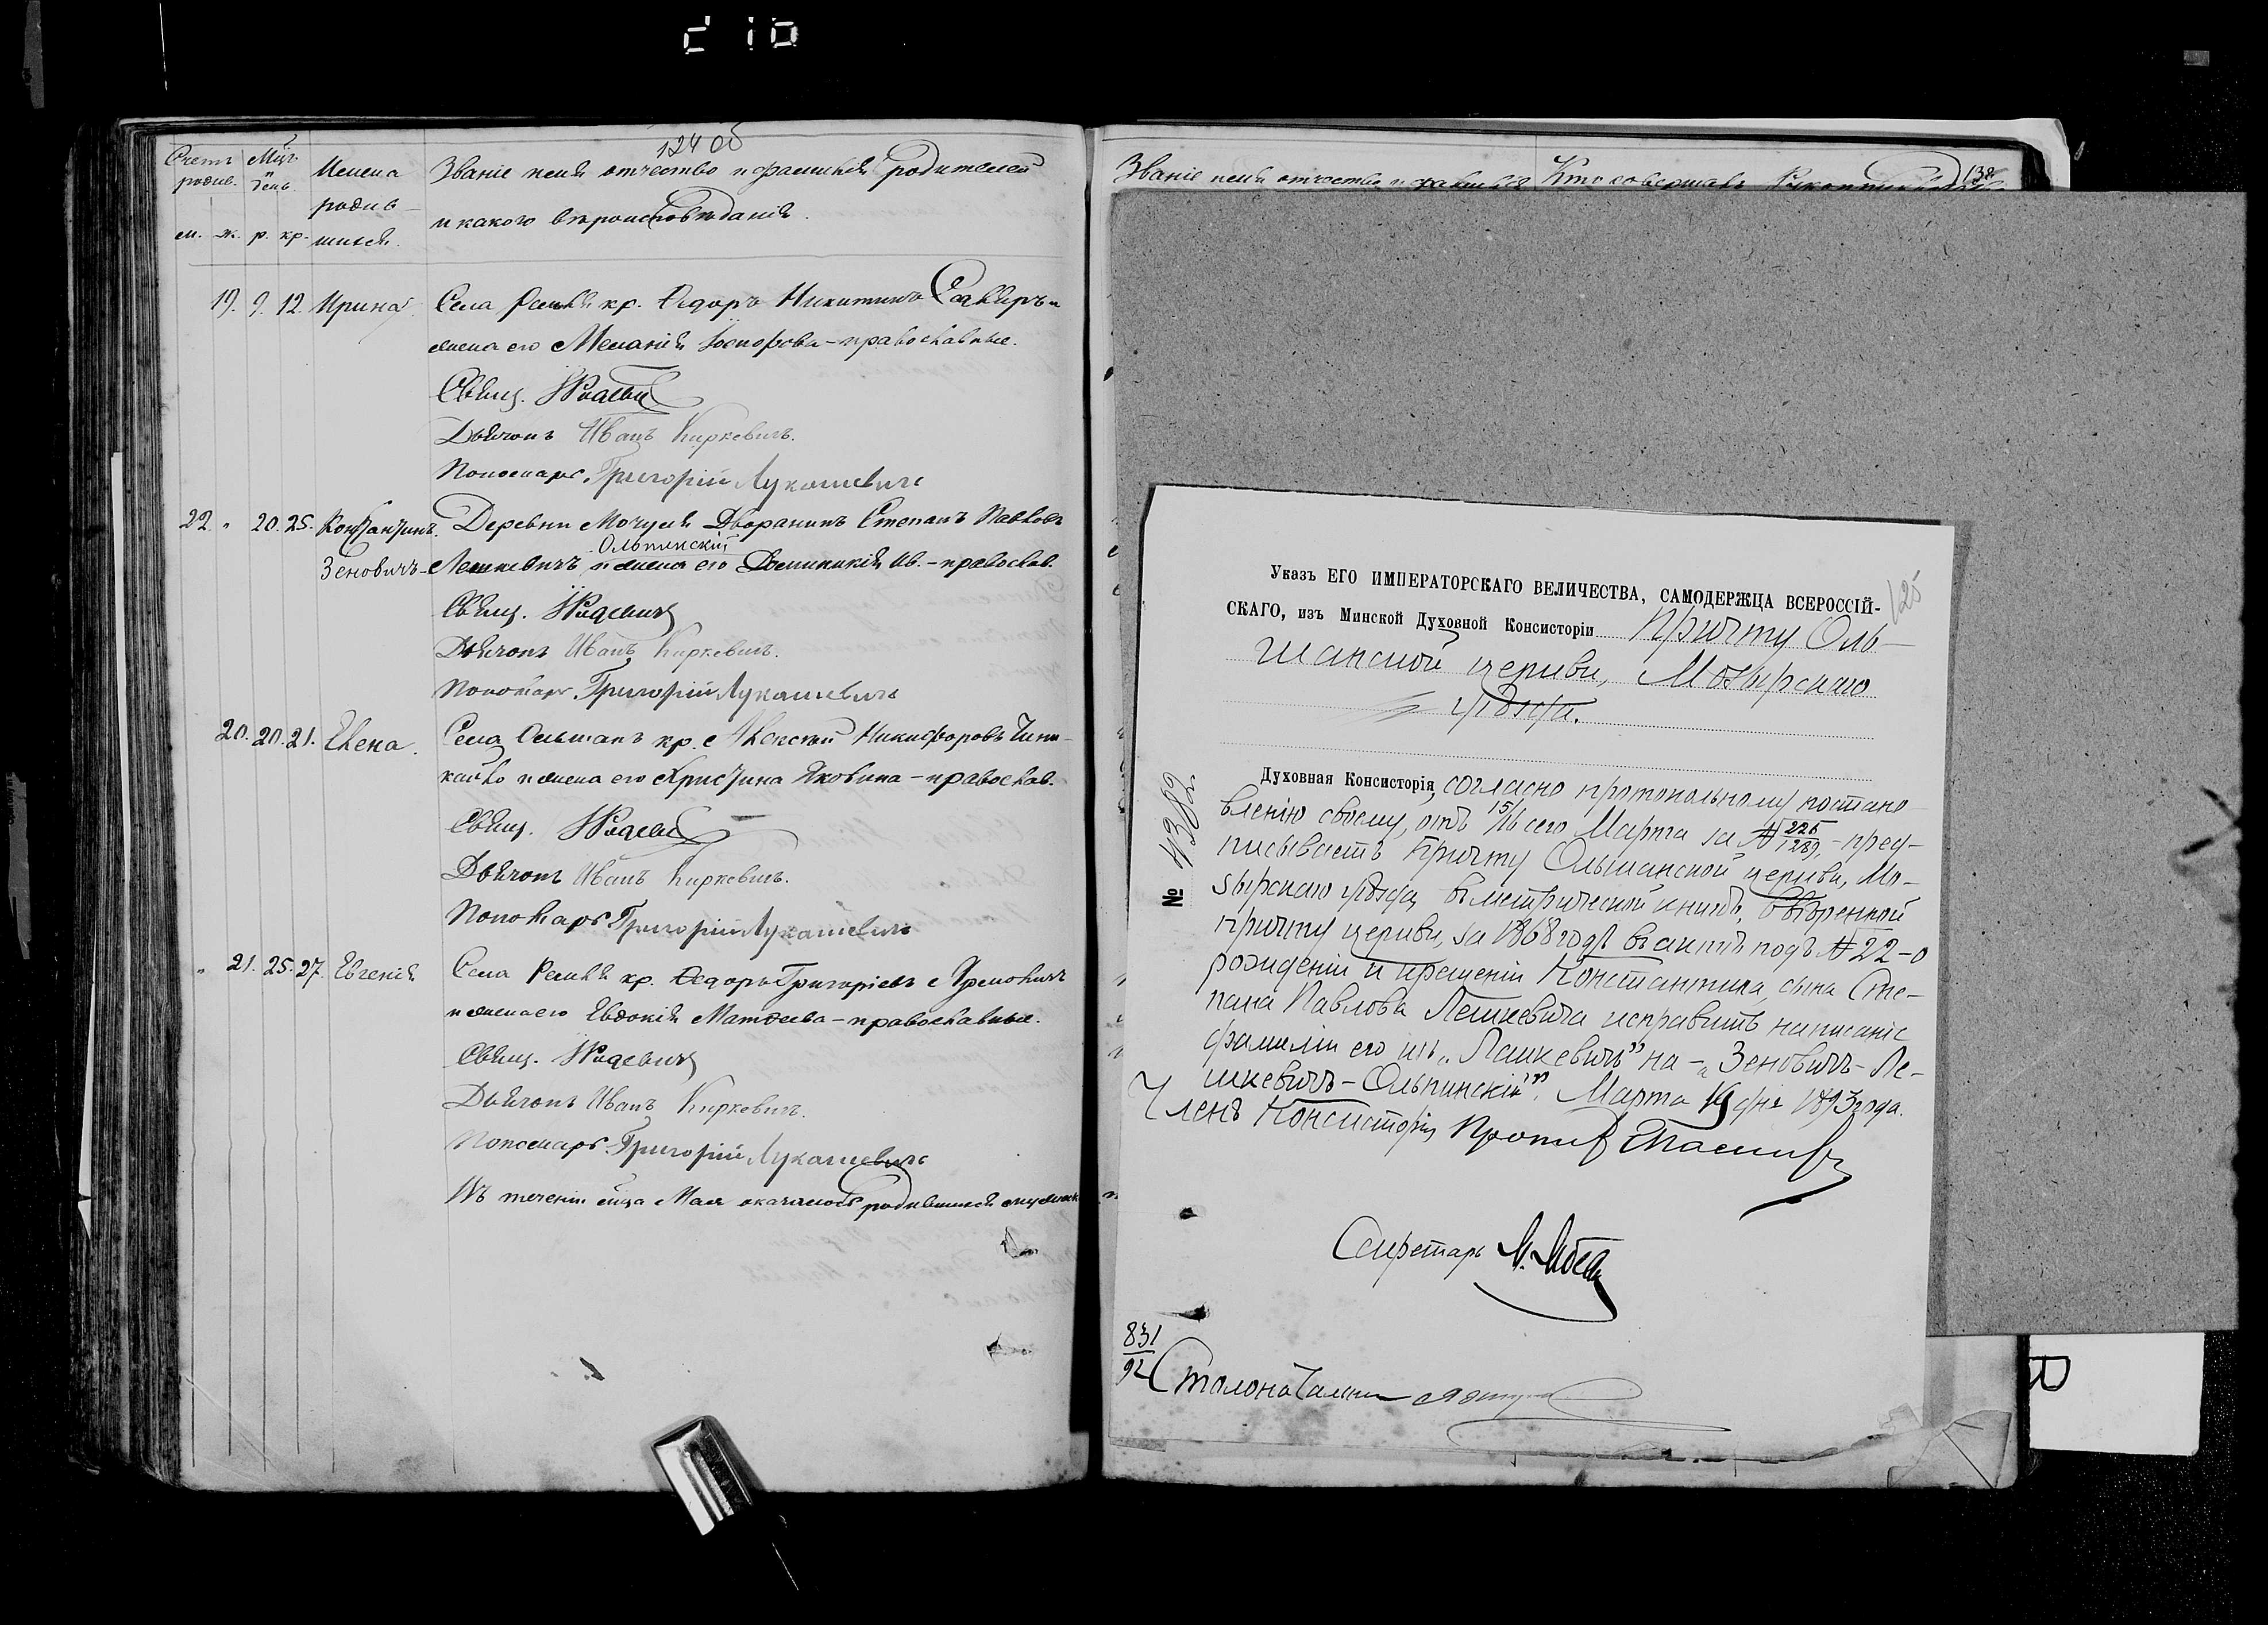 124 об
Счетъ родив. Мц̃ъ и день Имена родив- шихся. Званіе имя отчество и фамилія родителей
и какого вѣроисповѣданія.
м. ж. р. кр.
19. 9. 12. Ирина. Села кр. Ѳедоръ Никитинъ и
жена его Меланія православные.
Свящ.
Дьячокъ Иванъ Киркевичъ.
Пономарь Григорій Лукашевичъ
22 " 20. 25. Константинъ. Деревни Мочуля Дворянинъ Степанъ Павловъ
Ольпинскій
Зеновичъ- Лешкевичъ и жена его Доминикія Ив. - православ.
Свящ.
Дьячокъ Иванъ Киркевичъ.
Пономарь Григорій Лукашевичъ
20. 20. 21. Елена. Села Ольшанъ кр. Алексѣй Никифоровъ
и жена его Христина Яковина - православ.
Свящ.
Дьячокъ Иванъ Киркевичъ.
Пономарь Григорій Лукашевичъ
" 21. 25. 27. Евгенія Села кр. Ѳедоръ Григоріевъ
и жена его Евдокія Матѳеева - православные.
Свящ.
Дьячокъ Иванъ Киркевичъ.
Пономарь Григорій Лукашевичъ
Въ теченіи мц̃а Мая оказалось родившихся
Званіе имя отчество и фамилія Кто совершалъ
138
125
Указъ ЕГО ИМПЕРАТОРСКАГО ВЕЛИЧЕСТВА, САМОДЕРЖЦА ВСЕРОССІЙ-
СКАГО, изъ Минской Духовной Консисторіи Причту Оль-
шанской церкви, Мозырскаго
уѣзда.
№ 4382
Духовная Консисторія, согласно протокольному постано-
вленію своему, отъ 15/16 сего Марта за № 226/1289, - пред-
писываетъ причту Ольшанской церкви, Мо-
зырскаго уѣзда въ метрической книгѣ, ввѣренной
причту церкви, за 1868 годъ въ актѣ подъ № 22 - о
рожденіи и крещеніи Константина, сына Сте-
пана Павлова Лешкевича исправить написаніе
фамиліи его изъ „Лашкевичъ" на - „Зеновичъ-Ле-
шкевичъ-Ольпинскій". Марта 19 дня 1893 года.
Членъ Консисторіи
Секретарь
831/92
Столоначальникъ